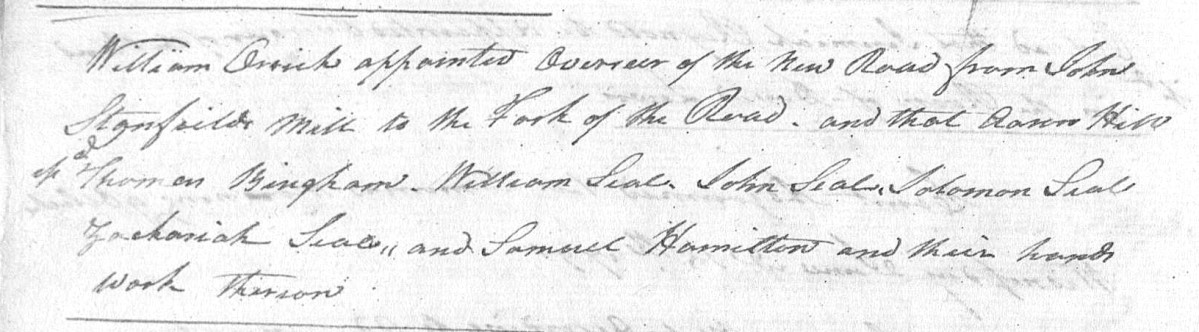 William Orrick appointed Overseer of the New Road from John
Stanfields Mill to the Fork of the Road. and that Aaron Hill
Thomas Bingham. William Seal. John Seal. Solomon Seal
Zachariah Seal,, and Samuel Hamilton and their hands
work thereon